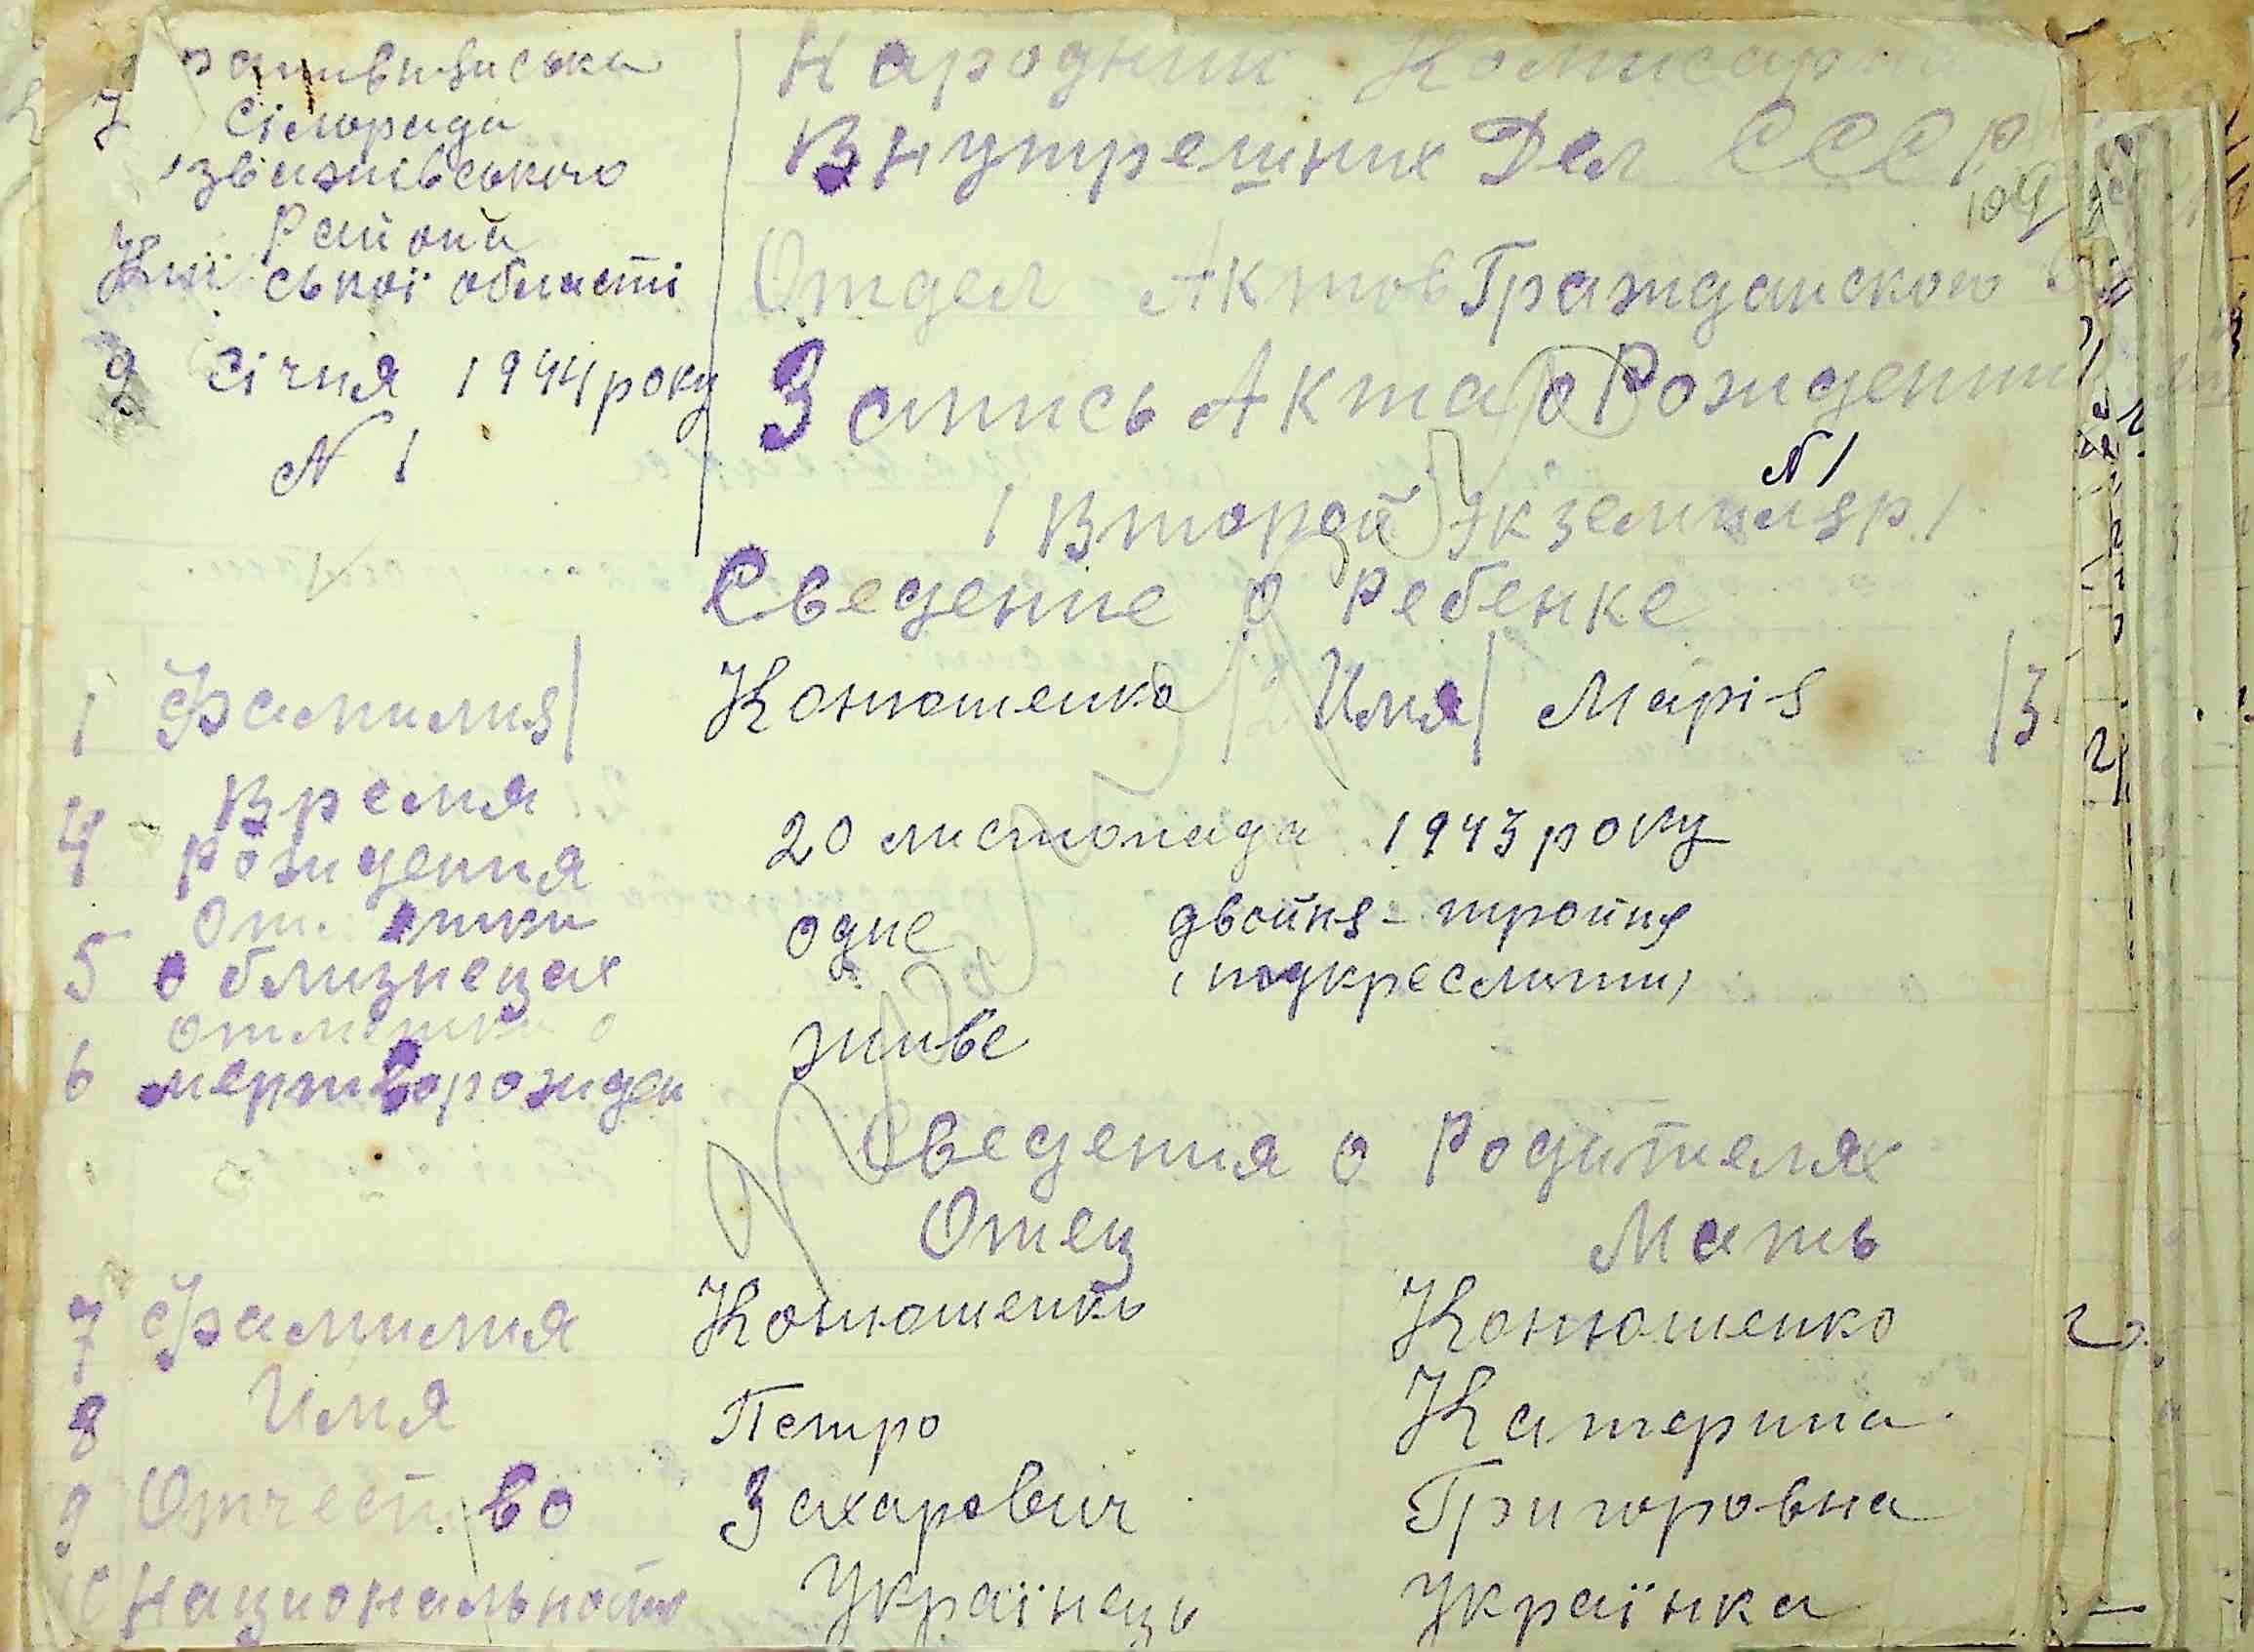 сілорада
звіжнівського
Району
ської області
9 січня 1944 року
N 1
Народний Комисари
Внутрешних Дел СССР
109
Отдел Актов Гражданского
Запись Акта о Рождении
N 1
/ Второй Экземпляр /
Сведение о Ребенке
1 Фамилия / Конюшенко / Имя / Марія / 3
4 Время Рождения 20 листопада 1943 року
5 о близнецах одне двойня - тройня
(подкреслити)
6 отметка о мертворожден живе
Сведения о Родителях
Отец Мать
7 Фамилия Конюшенко Конюшенко
8 Имя Петро Катерина
9 Отчество Захарович Григоровна
10 Национальность Українець Українка